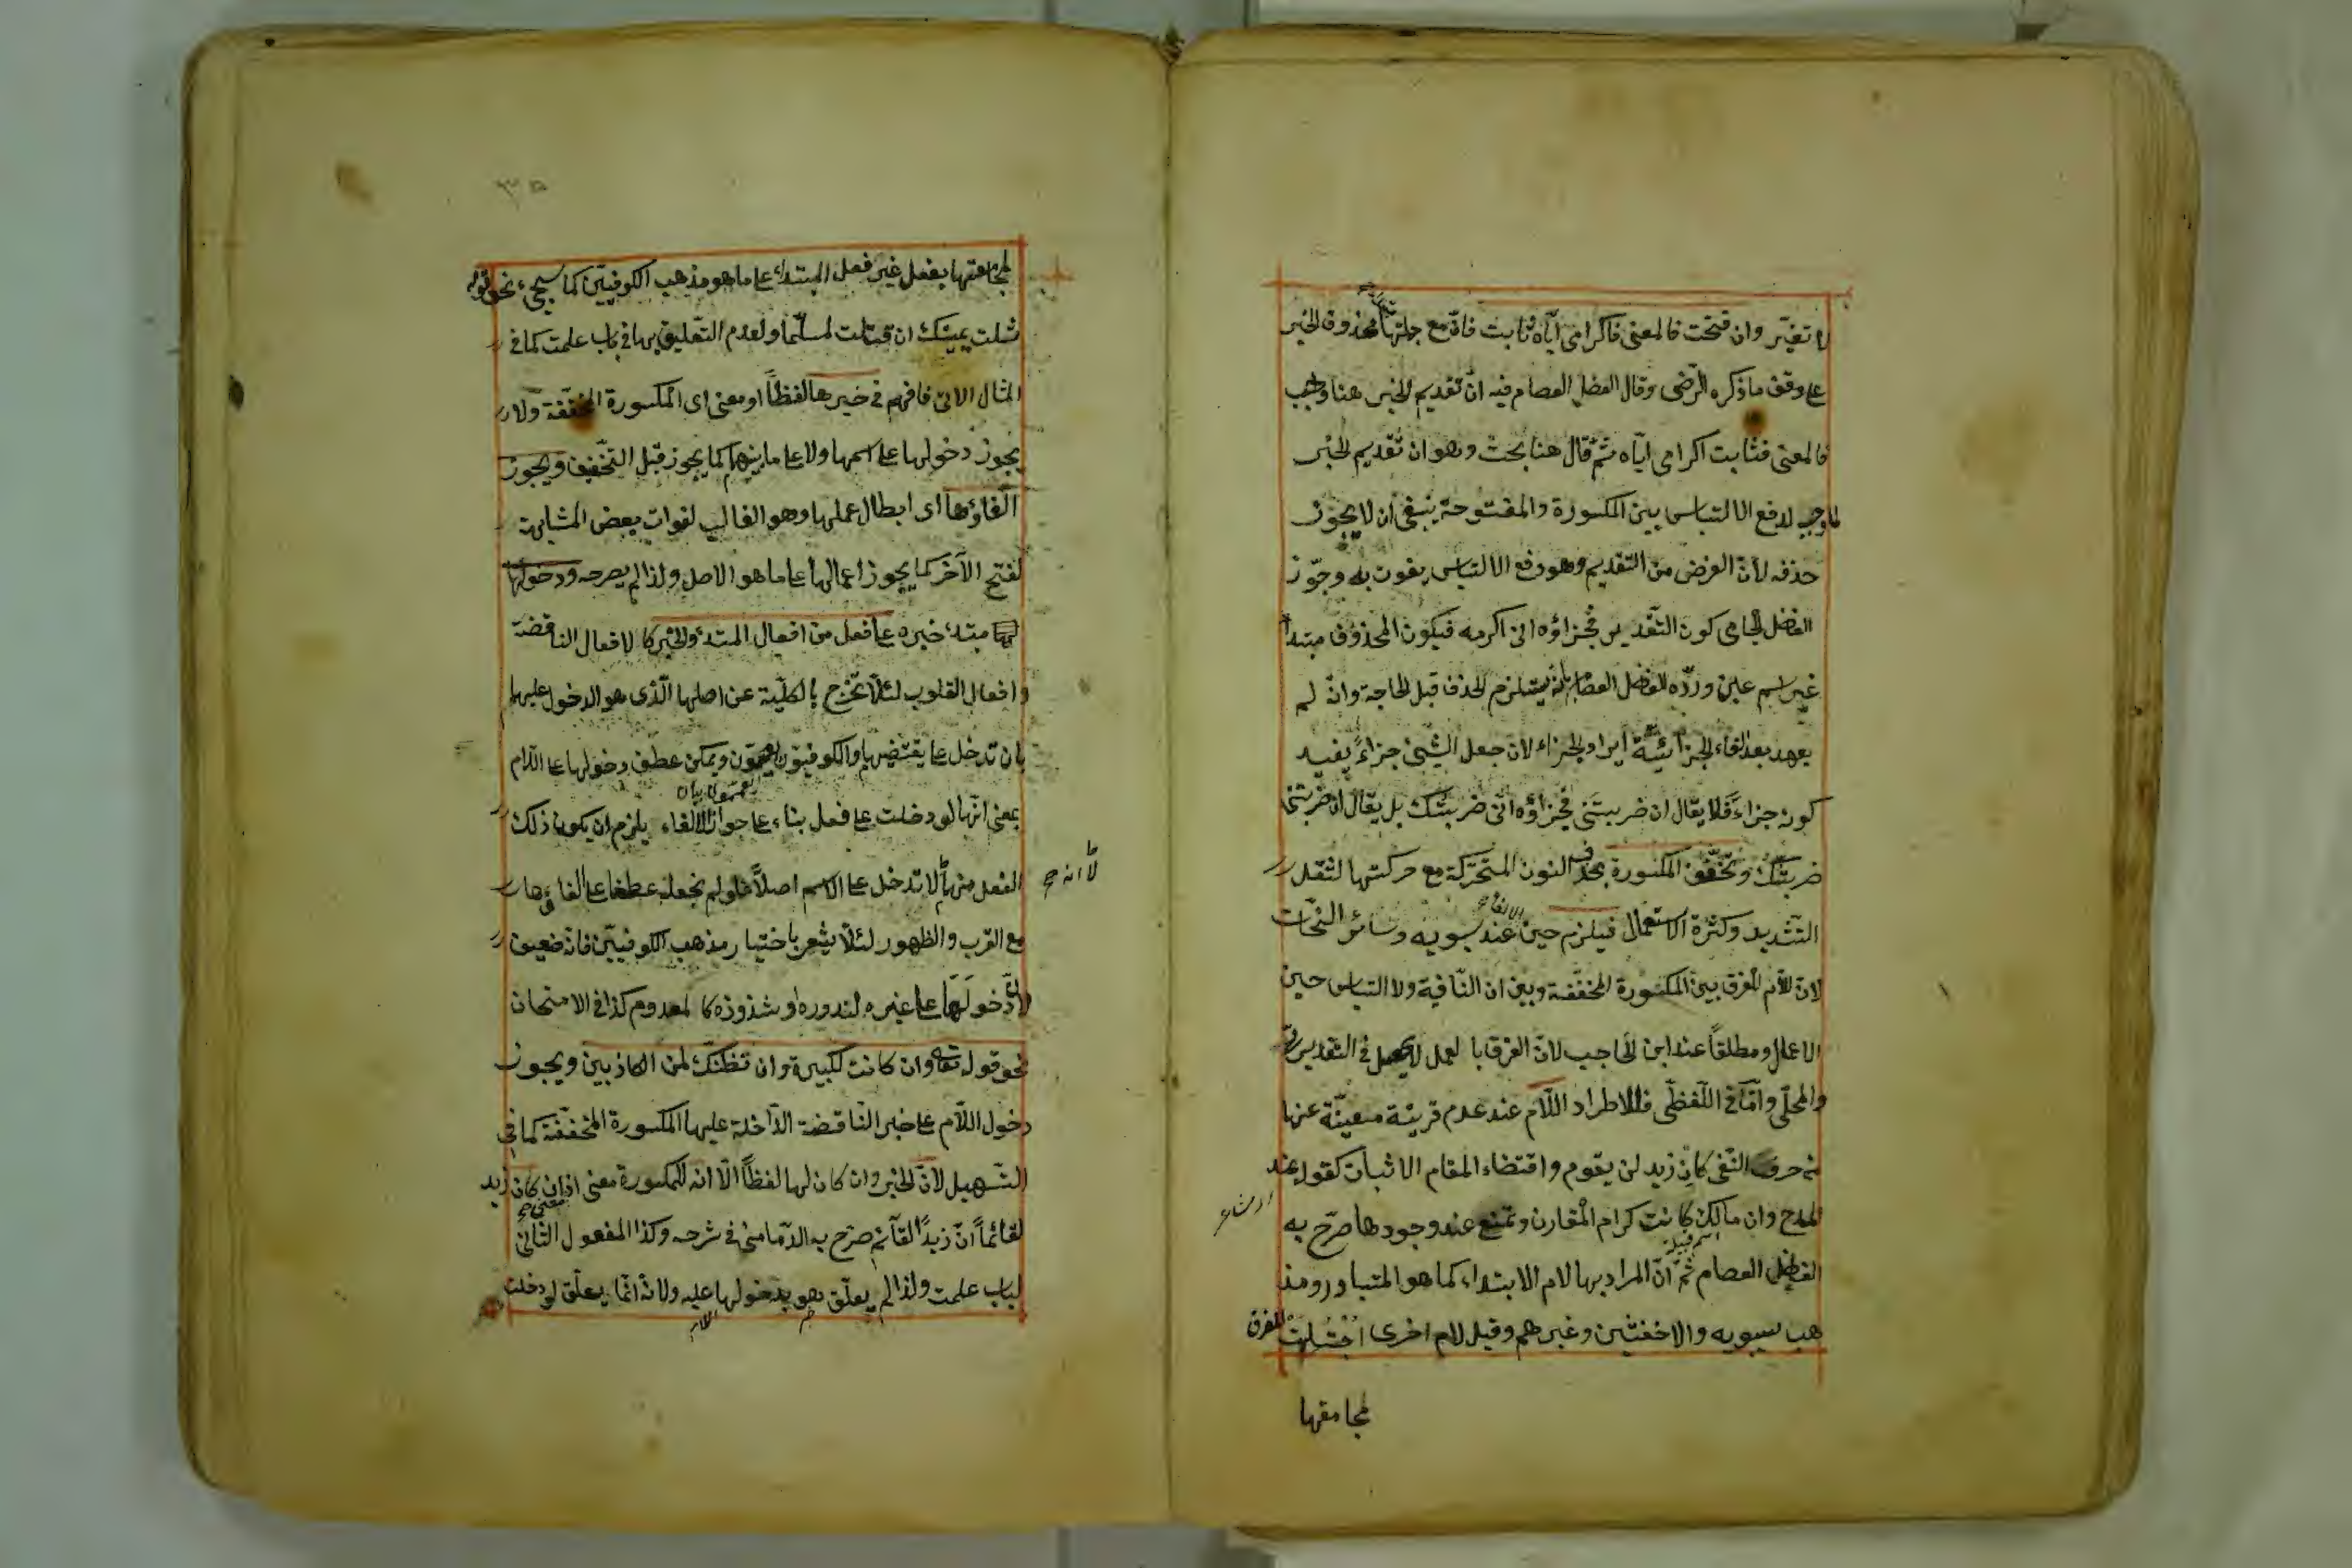 لا تغيّر وان فتحت فالمعنى فاكرامى ايّاه ثابت فانّ مع جملتها محذوف الخبر
على وفق ما ذكره الرّضى وقال الفضل العصام فيه انّ تقديم الخبر هنا واجب
فالمعنى فثابت اكرامى ايّاه ثمّ قال هنا بحث وهو ان تقديم الخبر
لما وجب لدفع الالتباس بين المكسورة والمفتوحة ينبغى ان لا يجوز
حذفه لانّ الغرض من التقديم وهو دفع الالتباس يفوت به وجوّز
الفضل الجامى كون التّقدير فجزاؤه انّى اكرمه فيكون المحذوف مبتدأ
غير اسم عين وردّه الفضل العصام بانّه يستلزم الحذف قبل الحاجة وانّ لم
يعهد بعد الفاء الجزائيّة ايراد الجزاء لان جعل الشّيئ جزاءً يفيد
كونه جزاءً فلا يقال ان ضربتنى فجزاؤه انّى ضربتك بل يقال ان ضربتنى
ضربتك وتخفّف المكسورة بحذف النون المتحرّكة مع حركتها لثقل
التّشديد وكثرة الاستعمال فيلزم حين عند سيبويه وسائر النّحات
لانّ اللام للفرق بين المكسورة المخفّفة وبين ان النّافية ولا التباس حين
الاعمال ومطلقاً عند ابن الحاجب لانّ الفرق بالعمل لا يحصل فى التقديرىّ
والمحلّى وامّا فى اللّفظّى فللاطراد اللّام عند عدم قرينة معيّنة عنها
من حرف النّفى كان زيد لن يقوم واقتضاء المقام الاثبات كقوله عند
المدح وان مالك كانت كرام المقارن وتمنع عند وجودها صرّح به
الفضل العصام ثمّ انّ المراد بها لام الابتداء كما هو المتبادر ومذ
هب سيبويه والاخفشين وغيرهم وقيل لام اخرى اجتلبت للفرق
لمجامعتها
٣٥
لمجامعتها بفعل غير فعل المبتداء على ما هو مذهب الكوفيّين كما سيجئ نحو قوله
شلت يمينك ان قتلت لمسلما ولعدم التّعليق بها فى باب علمت كما فى
المثال الاتى فافهم فى خبرها لفظاً او معنى اى المكسورة المخفّفة ولا
يجوز دخولها على اسمها ولا على ما بينهما كما يجوز قبل التّخفيف ويجوز
الغاؤها اى ابطال عملها وهو الغالب لفوات بعض المشابهة
لفتح الآخر كما يجوز اعمالها على ما هو الاصل ولذا لم يصرحه ودخولها
مبتدء خبره على فعل من افعال المبتدء والخبر كالافعال الناقصة
وافعال القلوب لئلّا تخرج بالكلّية عن اصلها الّذى هو الدخول عليهما
بان تدخل على ما يقتضيها والكوفيّون يعممون ويمكن عطف دخولها على اللّام
بمعنى انّها لو دخلت على فعل بناء على جواز الالغاء يلزم ان يكون ذلك
الفعل منها لا تدخل على الاسم اصلاً فلو لم نجعله عطفا على الغاؤها
لا انه صح
مع القرب والظهور لئلّا يشعر باختيار مذهب الكوفيّين فانّه ضعيف
لانّ دخولها على غيره لندوره او شذوذه كالمعدوم كذا فى الامتحان
نحو قوله تعالى وان كانت لكبيرة وان تظنّك لمن الكاذبين ويجوز
دخول اللّام على خبر النّاقصة الدّاخلة عليها المكسورة المخفّفة كما فى
التّسهيل لانّ الخبر وان كان لها لفظاً الّا انه للمكسورة معنى اذ ان كان زيد
لقائماً انّ زيداً القآئم صرّح به الدّمامينى فى شرحه وكذا المفعول الثّانى
لباب علمت ولذا لم يعلّق هو بدخولها عليه ولانّه انّما يعلّق لو دخلت